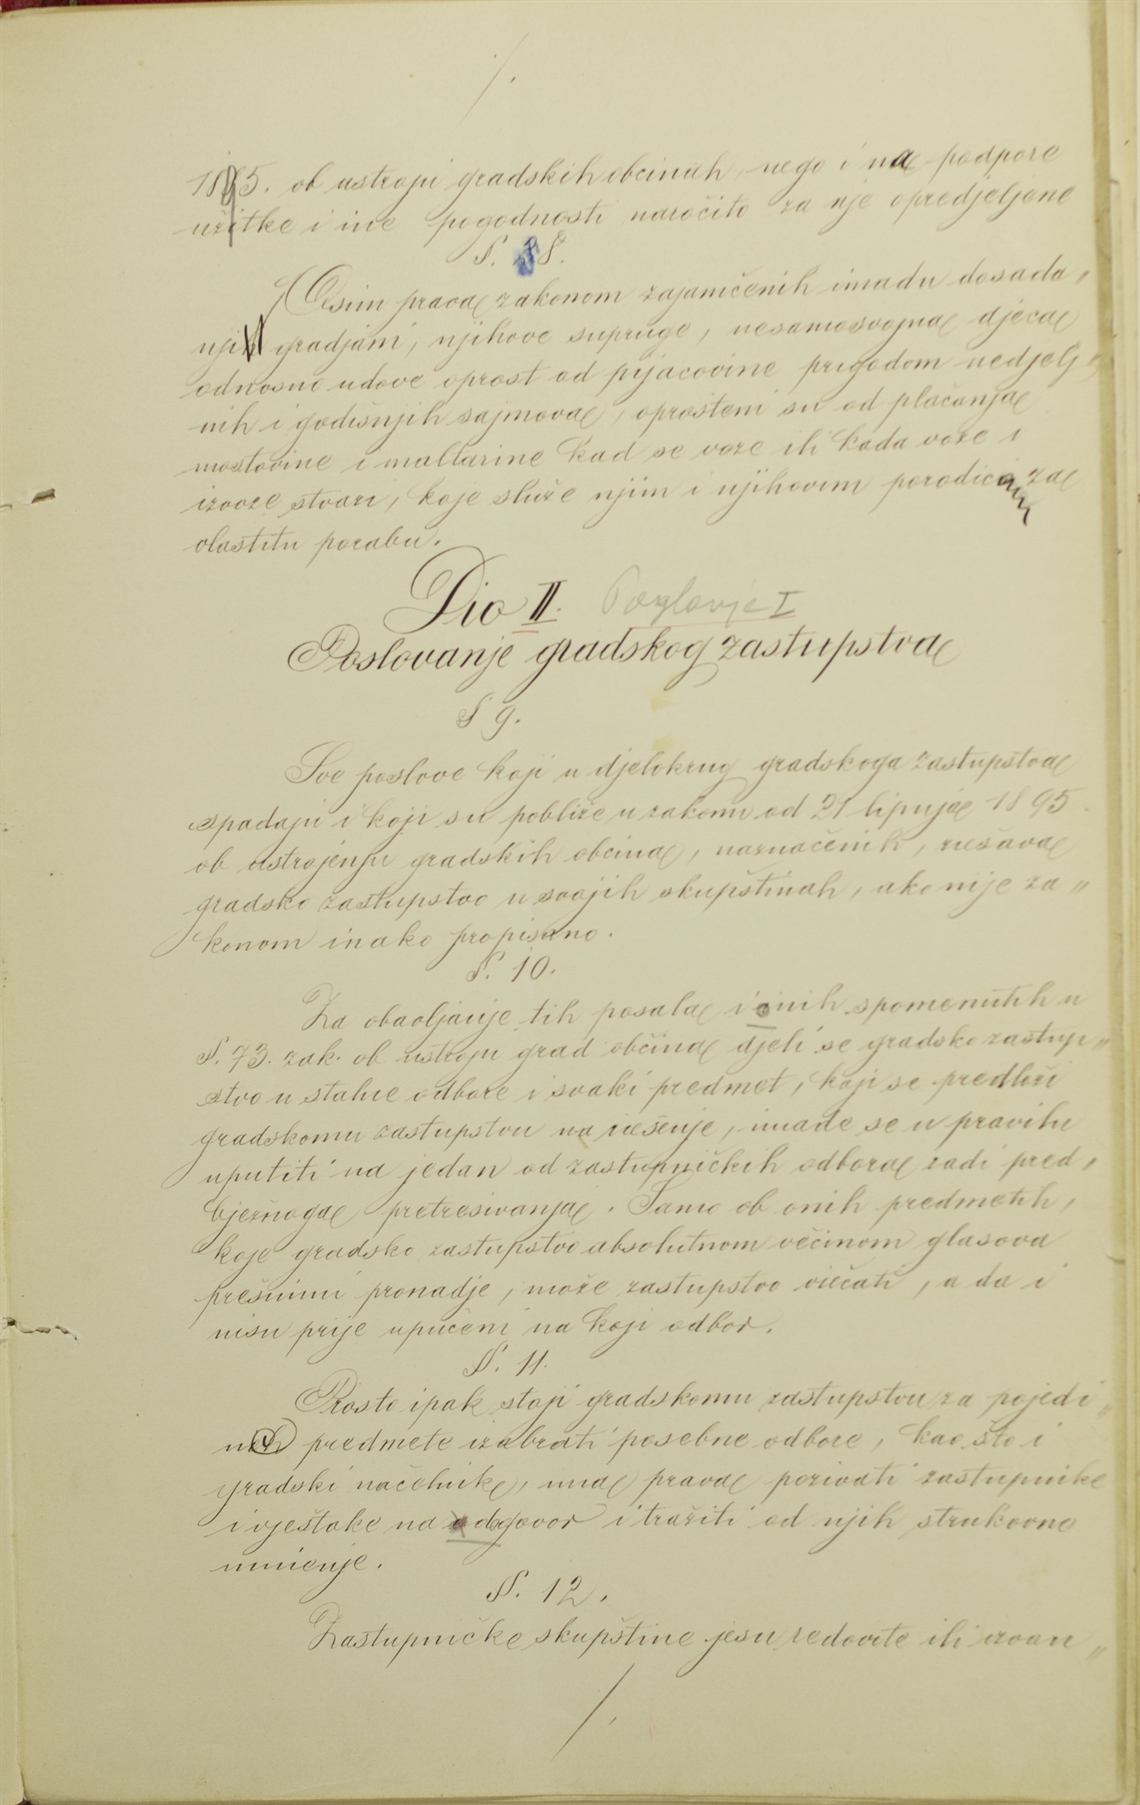 1895. ob ustroju gradskih obcinah, nego i na podpore
užitke i ine pogodnosti naročito za nje opredjeljene
§. 8.
Osim prava zakonom zajamčenih imadu dosada„
nji gradjani, njihove supruge, nesamosvojna djeca
odnosno udove oprost od pijacovine prigodom nedjelj„
nih i godišnjih sajmova, oprošteni su od plaćanja
mostovine i maltarine kad se voze ili kada voze i
izvoze stvari, koje služe njim i njihovim porodicam za
vlastitu porabu.
Dio II. Poglavje I
Poslovanje gradskog zastupstva
§ 9.
Sve poslove koji u djelokrug gradskoga zastupstva
spadaju i koji su pobliže u zakonu od 21 lipnja 1895.
ob ustrojenju gradskih obcina, naznačenih, riešava
gradsko zastupstvo u svojih skupštinah, ako nije za„
konom inako propisano.
§. 10.
Za obavljanje tih posala i onih spomenutih u
§. 73. zak. ob ustroju grad občina djeli se gradsko zastup„
stvo u stalne odbore i svaki predmet, koji se predloži
gradskomu zastupstvu na riešenje, imade se u pravilu
uputiti na jedan od zastupničkih odbora radi pred„
bježnoga pretresivanja. Samo ob onih predmetih,
koje gradsko zastupstvo absolutnom većinom glasova
prešnimi pronadje, može zastupstvo viećati, a da i
nisu prije upućeni na koji odbor.
§. 11.
Prosto ipak stoji gradskomu zastupstvu za pojedi„
ne predmete izabrati posebne odbore, kao što i
gradski načelnik, ima prava pozivati zastupnike
i vještake na odgovor i tražiti od njih strukovno
mnienje.
§. 12.
Zastupničke skupštine jesu redovite ili izvan„